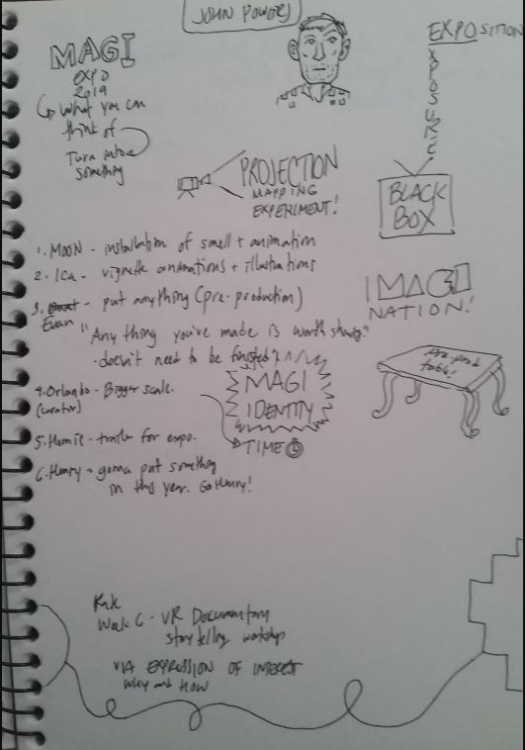 JOHN POWERS
MAGI
EXPO
2019
what you can
think of
Turn into
something
EXPOSITION
EXPOSURE
PROJECTION
MAPPING
EXPERIMENT!
BLACK
BOX
1. MOON - installation of smell + animation
2. Ica - vignette animations + illustrations
3. Evan - put anything (pre-production)
"Any thing you've made is worth showing"
- doesn't need to be finished
IMAGI
NATION!
pre-prod
table!
MAGI
IDENTITY
TIME
4. Orlando - Bigger scale.
(curator)
5. - trailer for expo.
6. Henry - gonna put something
in this year. Go Henry!
Week 6 - VR Documentary
story telling workshop
VIA EXPRESSION OF INTEREST
why and how